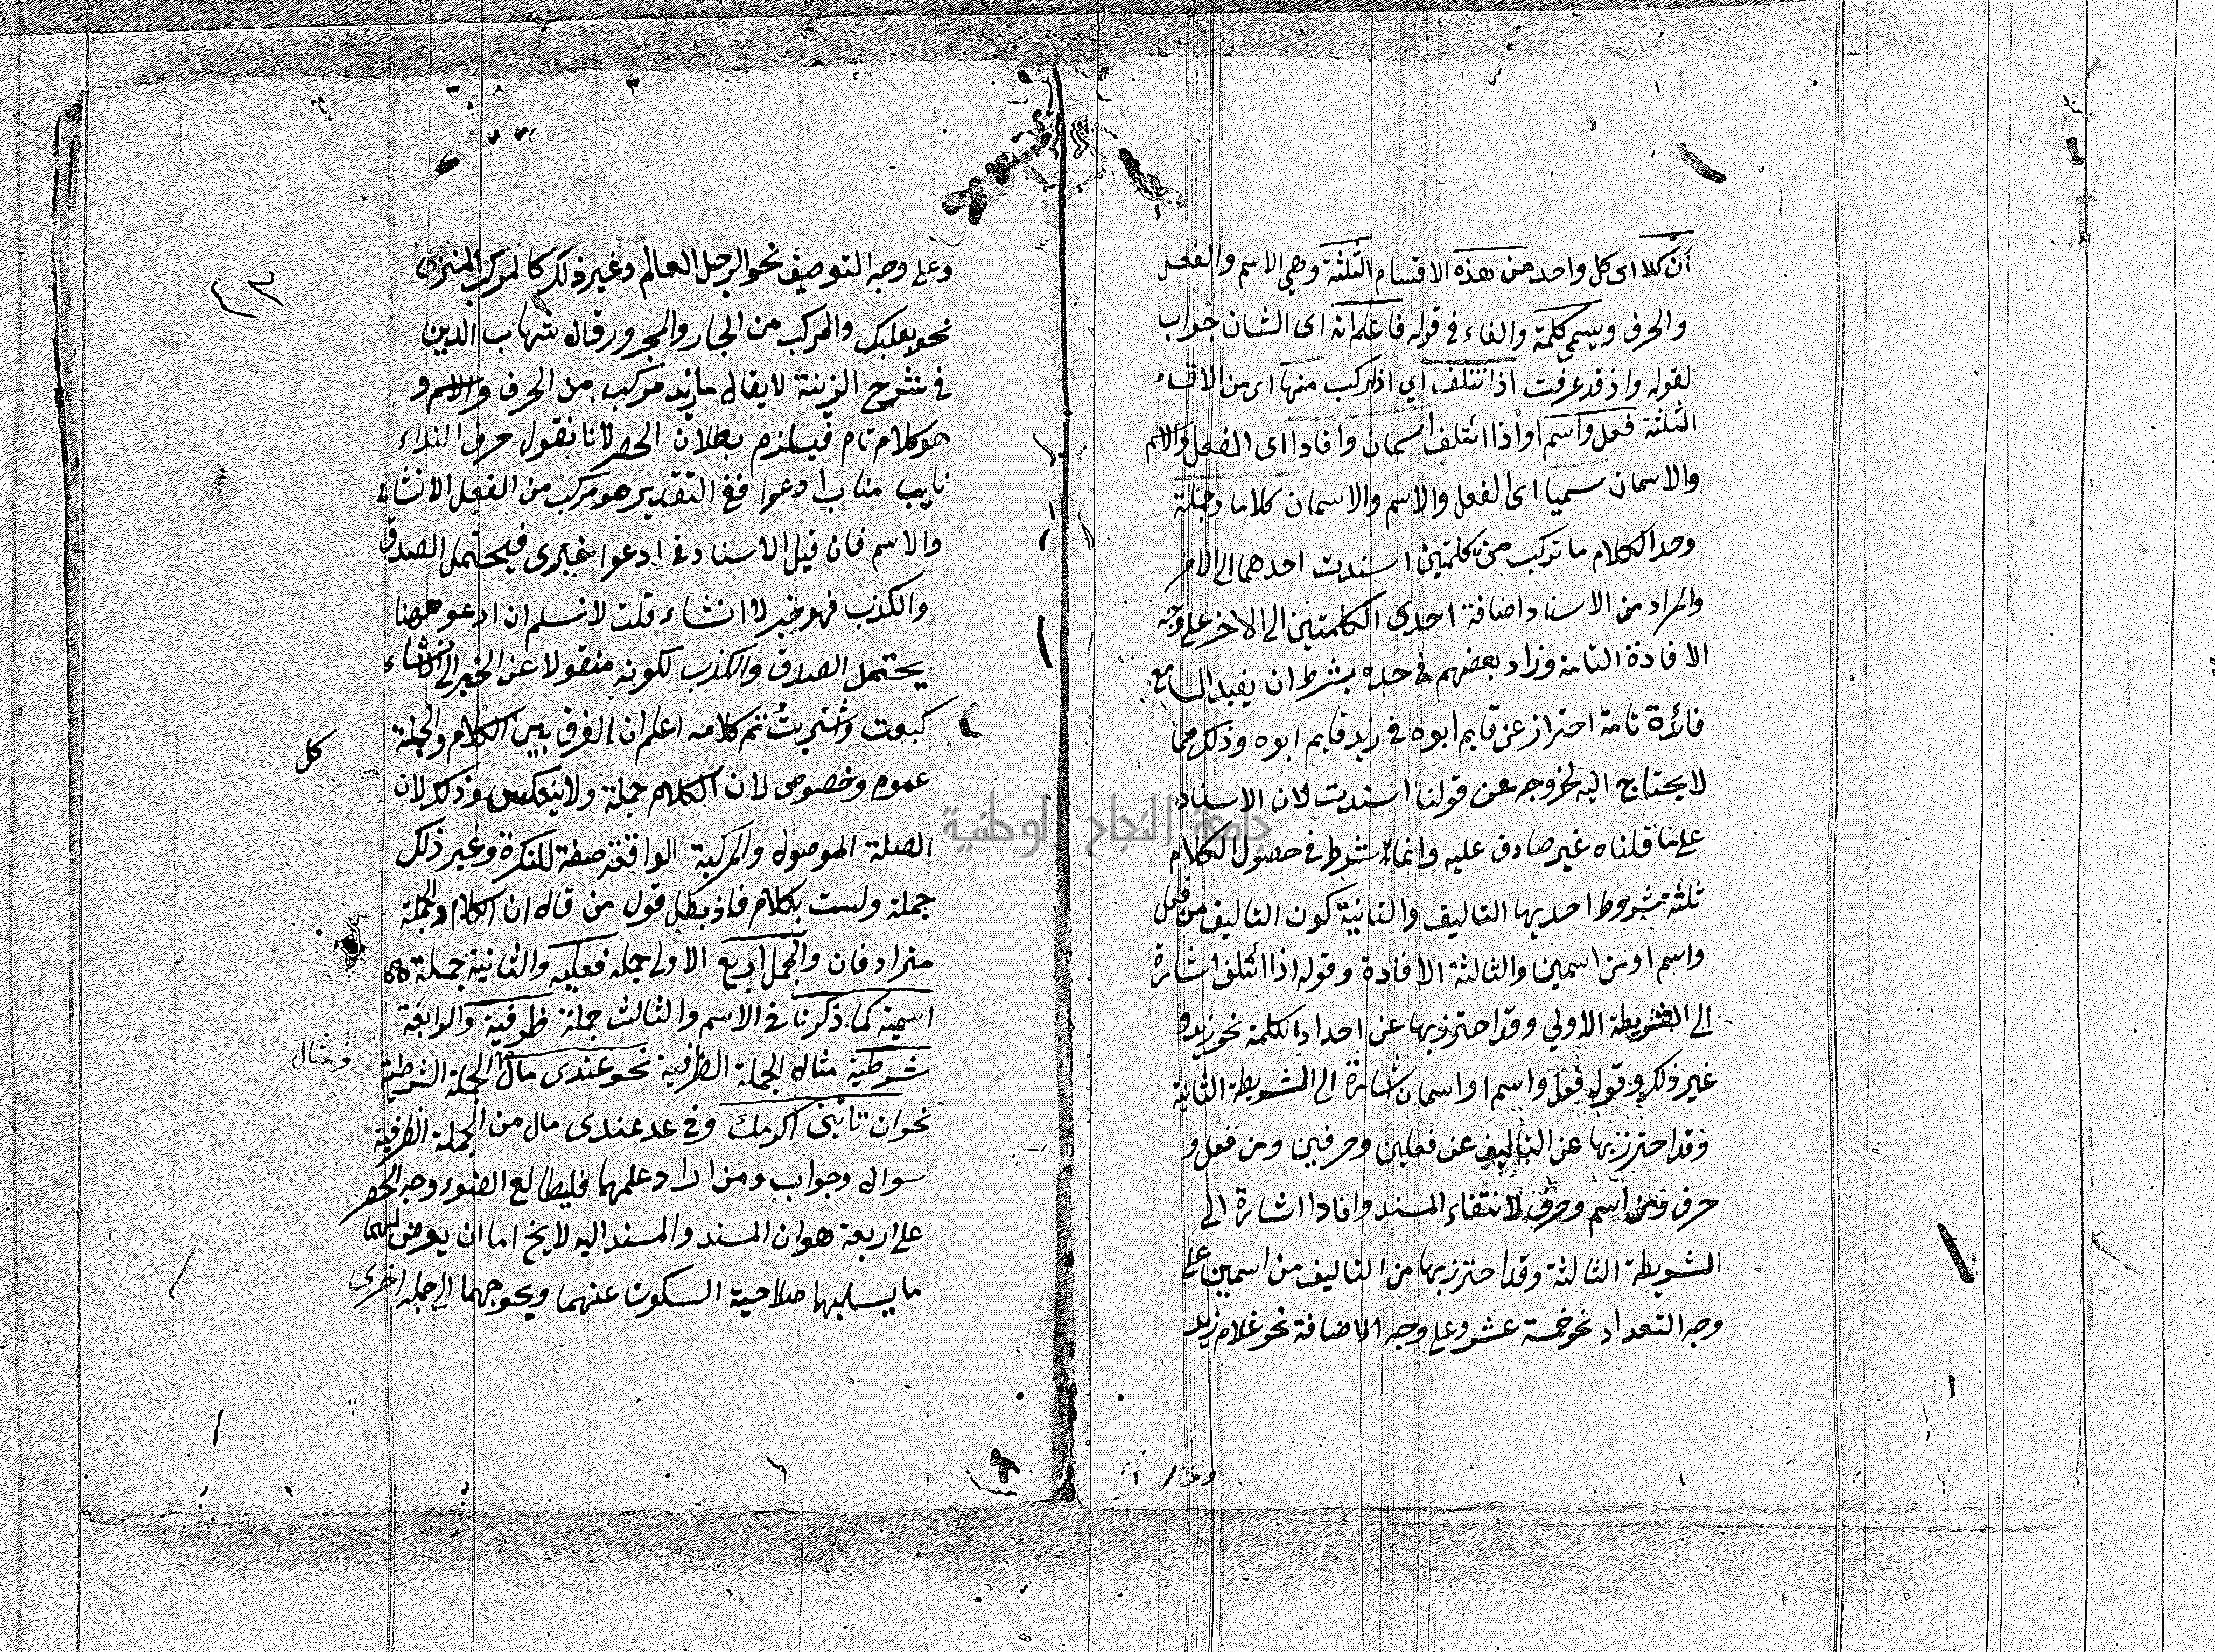 أن كلا اى كل واحد من هذه الاقسام الثلثة وهي الاسم والفعل
والحرف ويسمى كلمة والفاء في قوله فاعلم انه اى الشان جواب
لقوله واذ قد عرفت اذا ائتلف اي اذا ركب منها اى من الاقسام
الثلثة فعل واسم او اذا ائتلف اسمان وافادا اى الفعل والاسم
والاسمان سميا اى الفعل والاسم والاسمان كلاما وجملة
وحد الكلام ما تركب من كلمتين اسندت احدهما الى الاخر
والمراد من الاسناد اضافة احدى الكلمتين الى الاخر على وجه
الافادة التامة وزاد بعضهم في حده بشرط ان يفيد السامع
فائدة تامة احتراز عن قايم ابوه في زيد قايم ابوه وذلك مما
لا يحتاج اليه لخروجه عن قولنا اسندت لان الاسناد
على ما قلناه غير صادق عليه وانما شرط في حصول الكلام
ثلثة شروط احديها التاليف والثانية كون التاليف من فعل
واسم او من اسمين والثالثة الافادة وقوله اذا ائتلف اشارة
الى الشريطة الاولي وقد احترز بها عن احداد الكلمة نحو زيد و
غير ذلك وقوله فعل واسم او اسمان اشارة الى الشريطة الثانية
وقد احترز بها عن التاليف عن فعلين وحرفين ومن فعل و
حرف ومن اسم وحرف لانتفاء المسند وافادا اشارة الى
الشريطة الثالثة وقد احترز بها من التاليف من اسمين على
وجه التعداد نحو خمسة عشر وعلى وجه الاضافة نحو غلام زيد
٣
وعلى وجه التوصيف نحو الرجل العالم وغير ذلك كالمركب
نحو بعلبك والمركب من الجار والمجرور قال شهاب الدين
في شرح الزينة لا يقال يازيد مركب من الحرف والاسم و
هو كلام تام فيلزم بطلان الحصر لانا نقول حرف النداء
نايب مناب ادعوا ففي التقدير هو مركب من الفعل الانشائى
والاسم فان قيل الاسناد في ادعوا خبرى فيحتمل الصدق
والكذب فهو خبر لا انشاء قلت لا نسلم ان ادعو ههنا
يحتمل الصدق والكذب لكونه منقولا عن الخبر الى الانشاء
كبعت واشتريت تم كلامه اعلم ان الفرق بين الكلام والجملة
عموم وخصوص لان الكلام جملة ولا ينعكس وذلك لان
كل
الصلة الموصول والمركبة الواقعة صفة للنكرة وغير ذلك
جملة وليست بكلام فاذ بطل قول من قال ان الكلام والجملة
مترادفان والجمل اربع الاولى جملة فعلية والثانية جملة
اسمية كما ذكرنا في الاسم والثالث جملة ظرفية والرابعة
شرطية مثال الجملة الظرفية نحو عندى مال الجملة الشرطية
ومثال
نحو ان تاتنى اكرمك وفي عد عندى مال من الجملة الظرفية
سوال وجواب ومن اراد علمهما فليطالع الضوء وجه الحصر
على اربعة هو ان المسند والمسند اليه لا يخ اما ان يعرض لهما
ما يسلبها صلاحية السكوت عنهما ويحوجهما الى جملة اخرى
جامعة النجاح الوطنية